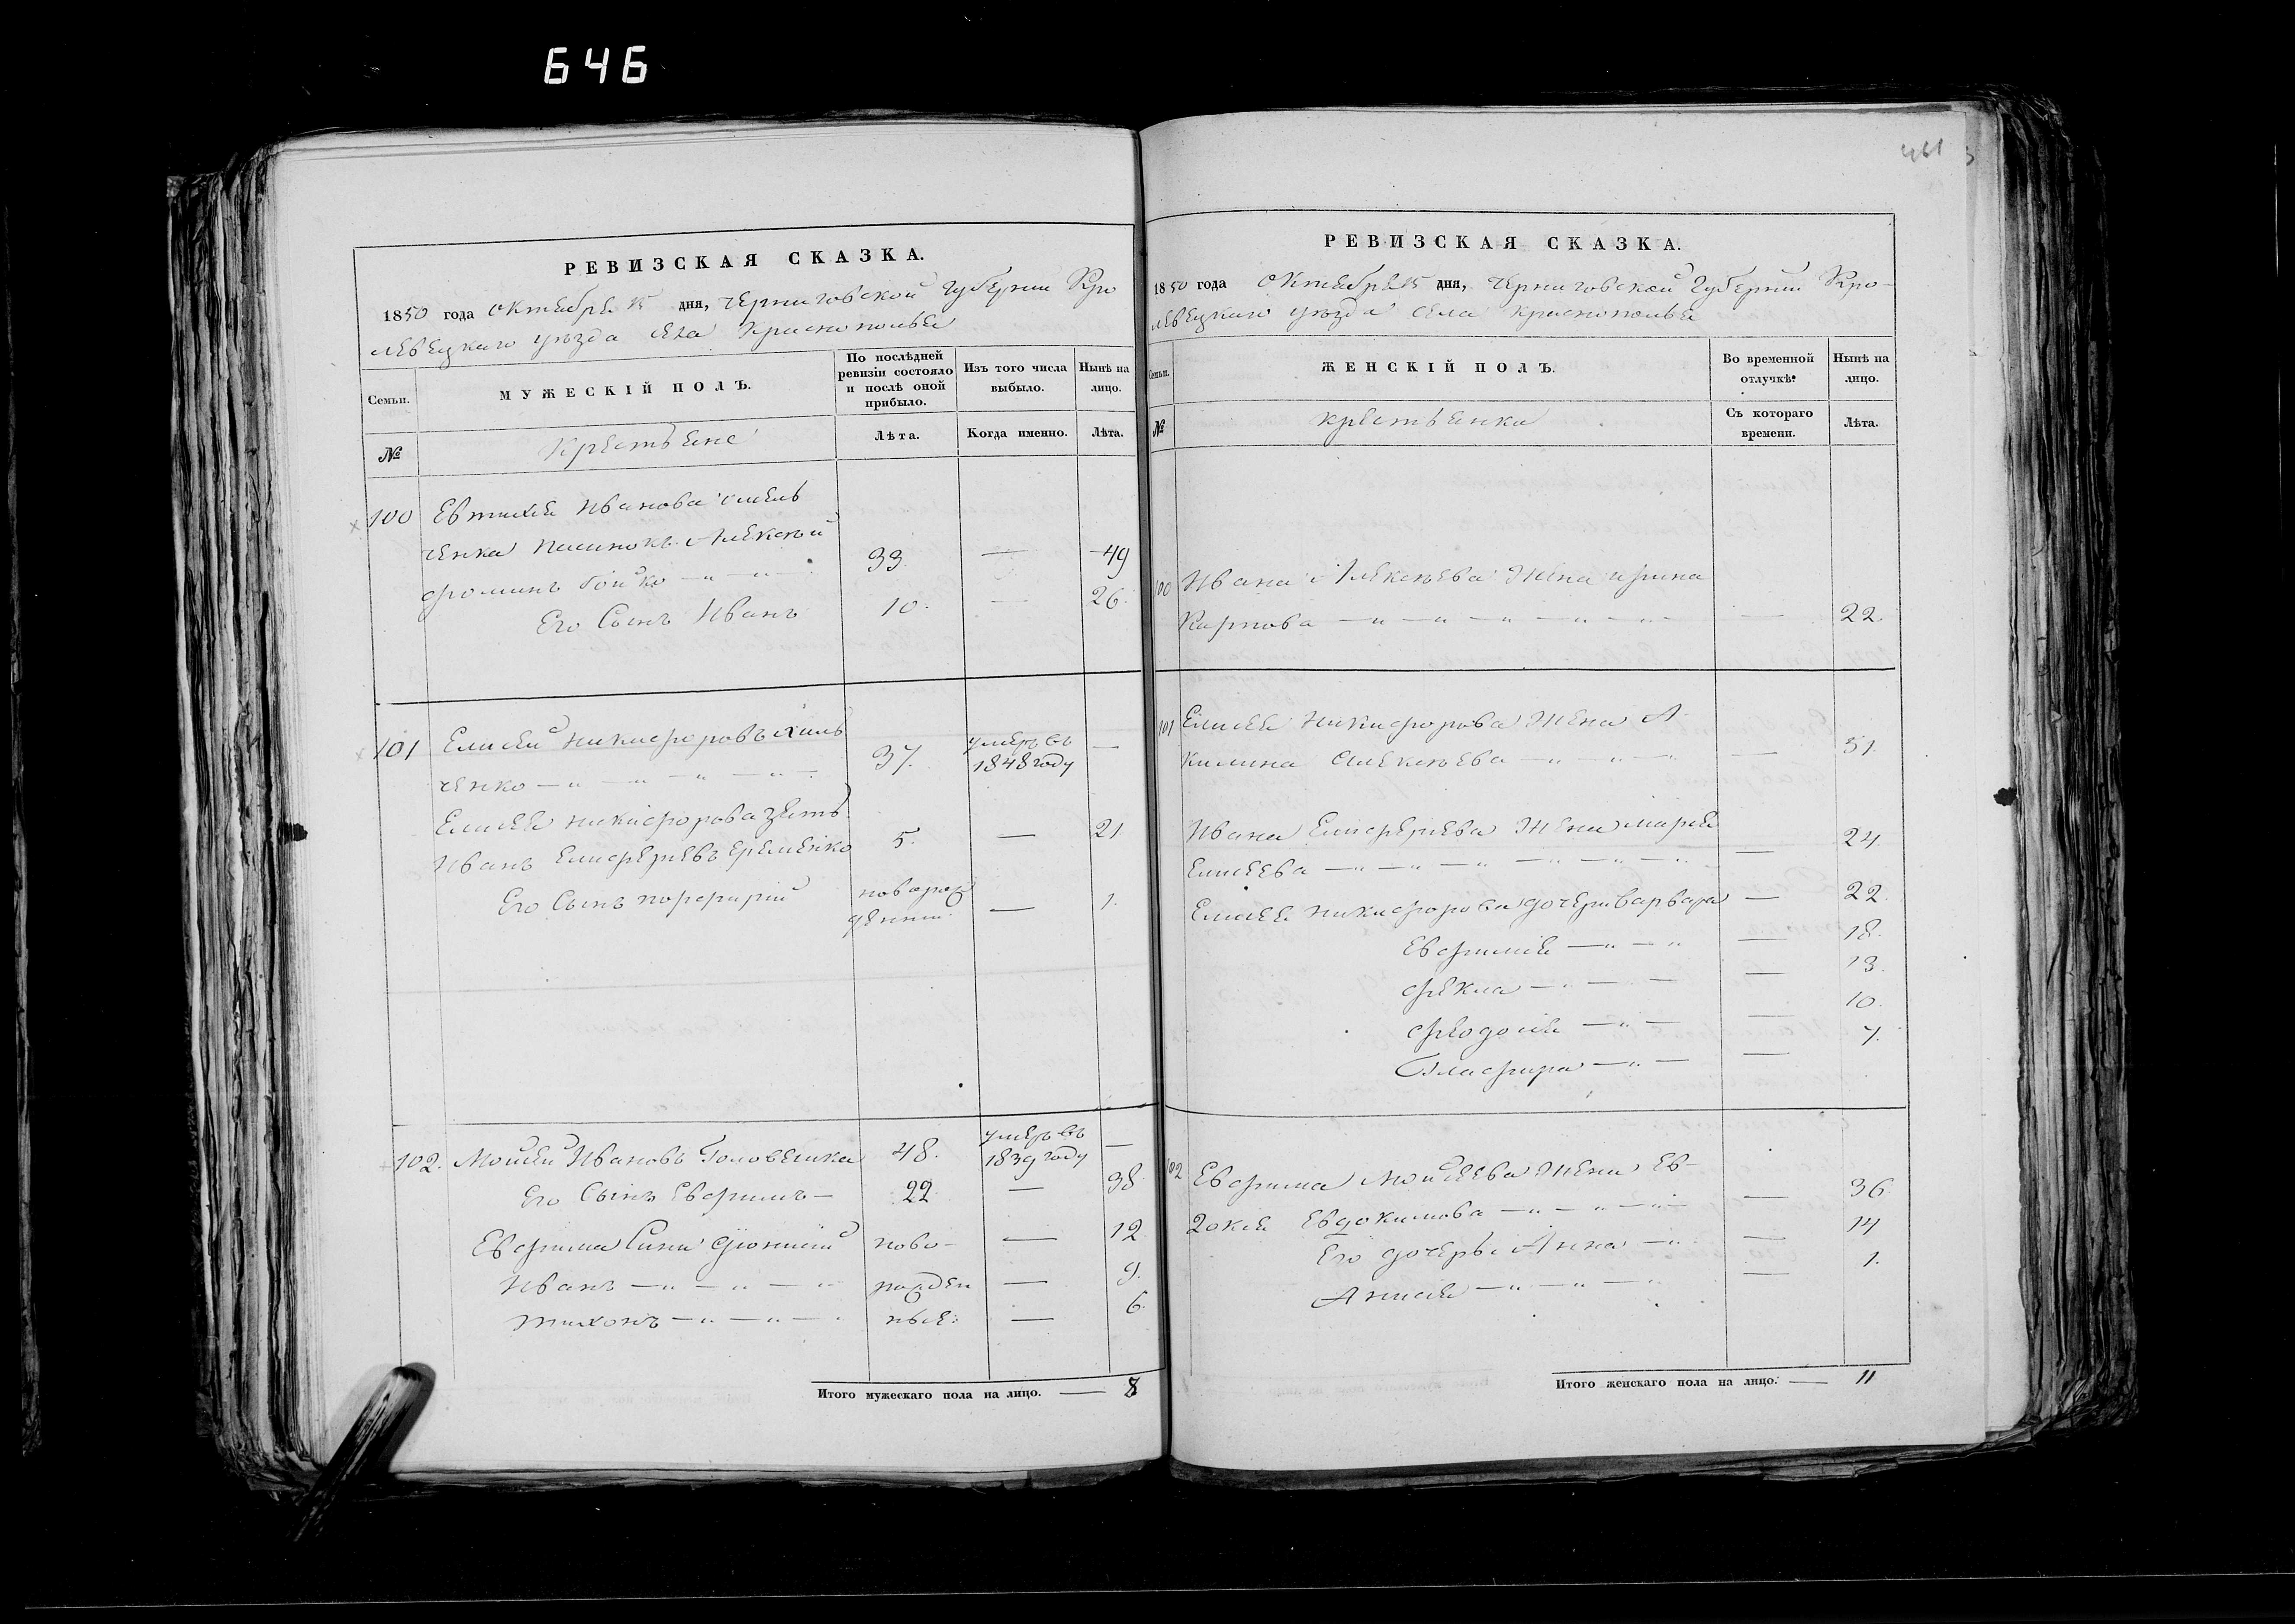 646
461
РЕВИЗСКАЯ СКАЗКА.
1850 года Октября 15 дня, Черниговской Губернии Кро
левецкаго уезда села Краснополья
Семьи.
МУЖЕСКІЙ ПОЛЪ.
По послѣдней ревизіи состояло и послѣ оной прибыло.
Изъ того числа выбыло.
Нынѣ на лицо.
№
Крестьяне
Лѣта.
Когда именно.
Лѣта.
100 Евтихия Иванова
ченка Пасинокъ Алексей
Фоминъ Бойко 33. — 49
Его Сынъ Иванъ 10. — 26.
101 Елисей Никифоровъ Хиль
ченко 37. умеръ въ 1848 году —
Елисея Никифорова зять
Иванъ Елиферьевъ Еременко 5. — 21.
Его Сынъ Порфирий новорож
денный — 1.
102. Мойсей Ивановъ Головешка 48. умеръ въ 1839 году —
Его Сынъ Евфимъ — 22 — 38
Евфима Сини Дионисий ново- — 12
Иванъ рожден — 9.
Тихонъ ные: — 6.
Итого мужескаго пола на лицо. — 8
РЕВИЗСКАЯ СКАЗКА.
1850 года Октября 15 дня, Черниговской Губернии Кро-
левецкаго уезда села Краснополья
Семьи.
ЖЕНСКІЙ ПОЛЪ.
Во временной отлучкѣ.
Нынѣ на лицо.
№
крестьянки
Съ котораго времени.
Лѣта.
100 Ивана Алексеева Жена Ирина
Карпова — 22.
101 Елисея Никифорова Жена А-
килина Алексеева — 51.
Ивана Елиферьева Жена Мария
Елисеева — 24.
Елисея Никифорова дочери Варвара — 22.
Евфимия — 18.
Фекла — 13.
Феодосия — 10.
Глафира — 7.
102 Евфима Мойсеева Жена Ев-
докия Евдокимова — 36.
Его дочери Анна — 14
Анисия — 1.
Итого женскаго пола на лицо. — 11